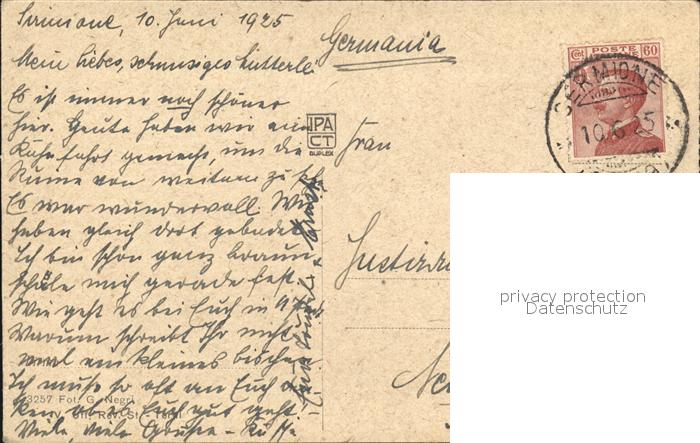 Sirmione, 10. Juni 1925
Germania
Mein liebes, schnusiges Mutterle!
Es ist immer noch schöner
hier. Heute haben wir eine
Kahnfahrt gemacht, um die
Ruine von weitem zu
Es war wundervoll. Wir
haben gleich dort gebadet.
Ich bin schon ganz braun,
schäle mich gerade fest.
Wie geht es bei Euch in
Warum schreibt Ihr nicht
mal ein kleines bischen.
Ich muß so oft an Euch
ken, ob es Euch gut geht.
Viele, viele Grüsse - Küsse
3257 Fot. G. Negri
IPA
CT
DUPLEX
Frau
Justizra
POSTE
Cent 60
SERMIONE
10.6.25
privacy protection
Datenschutz